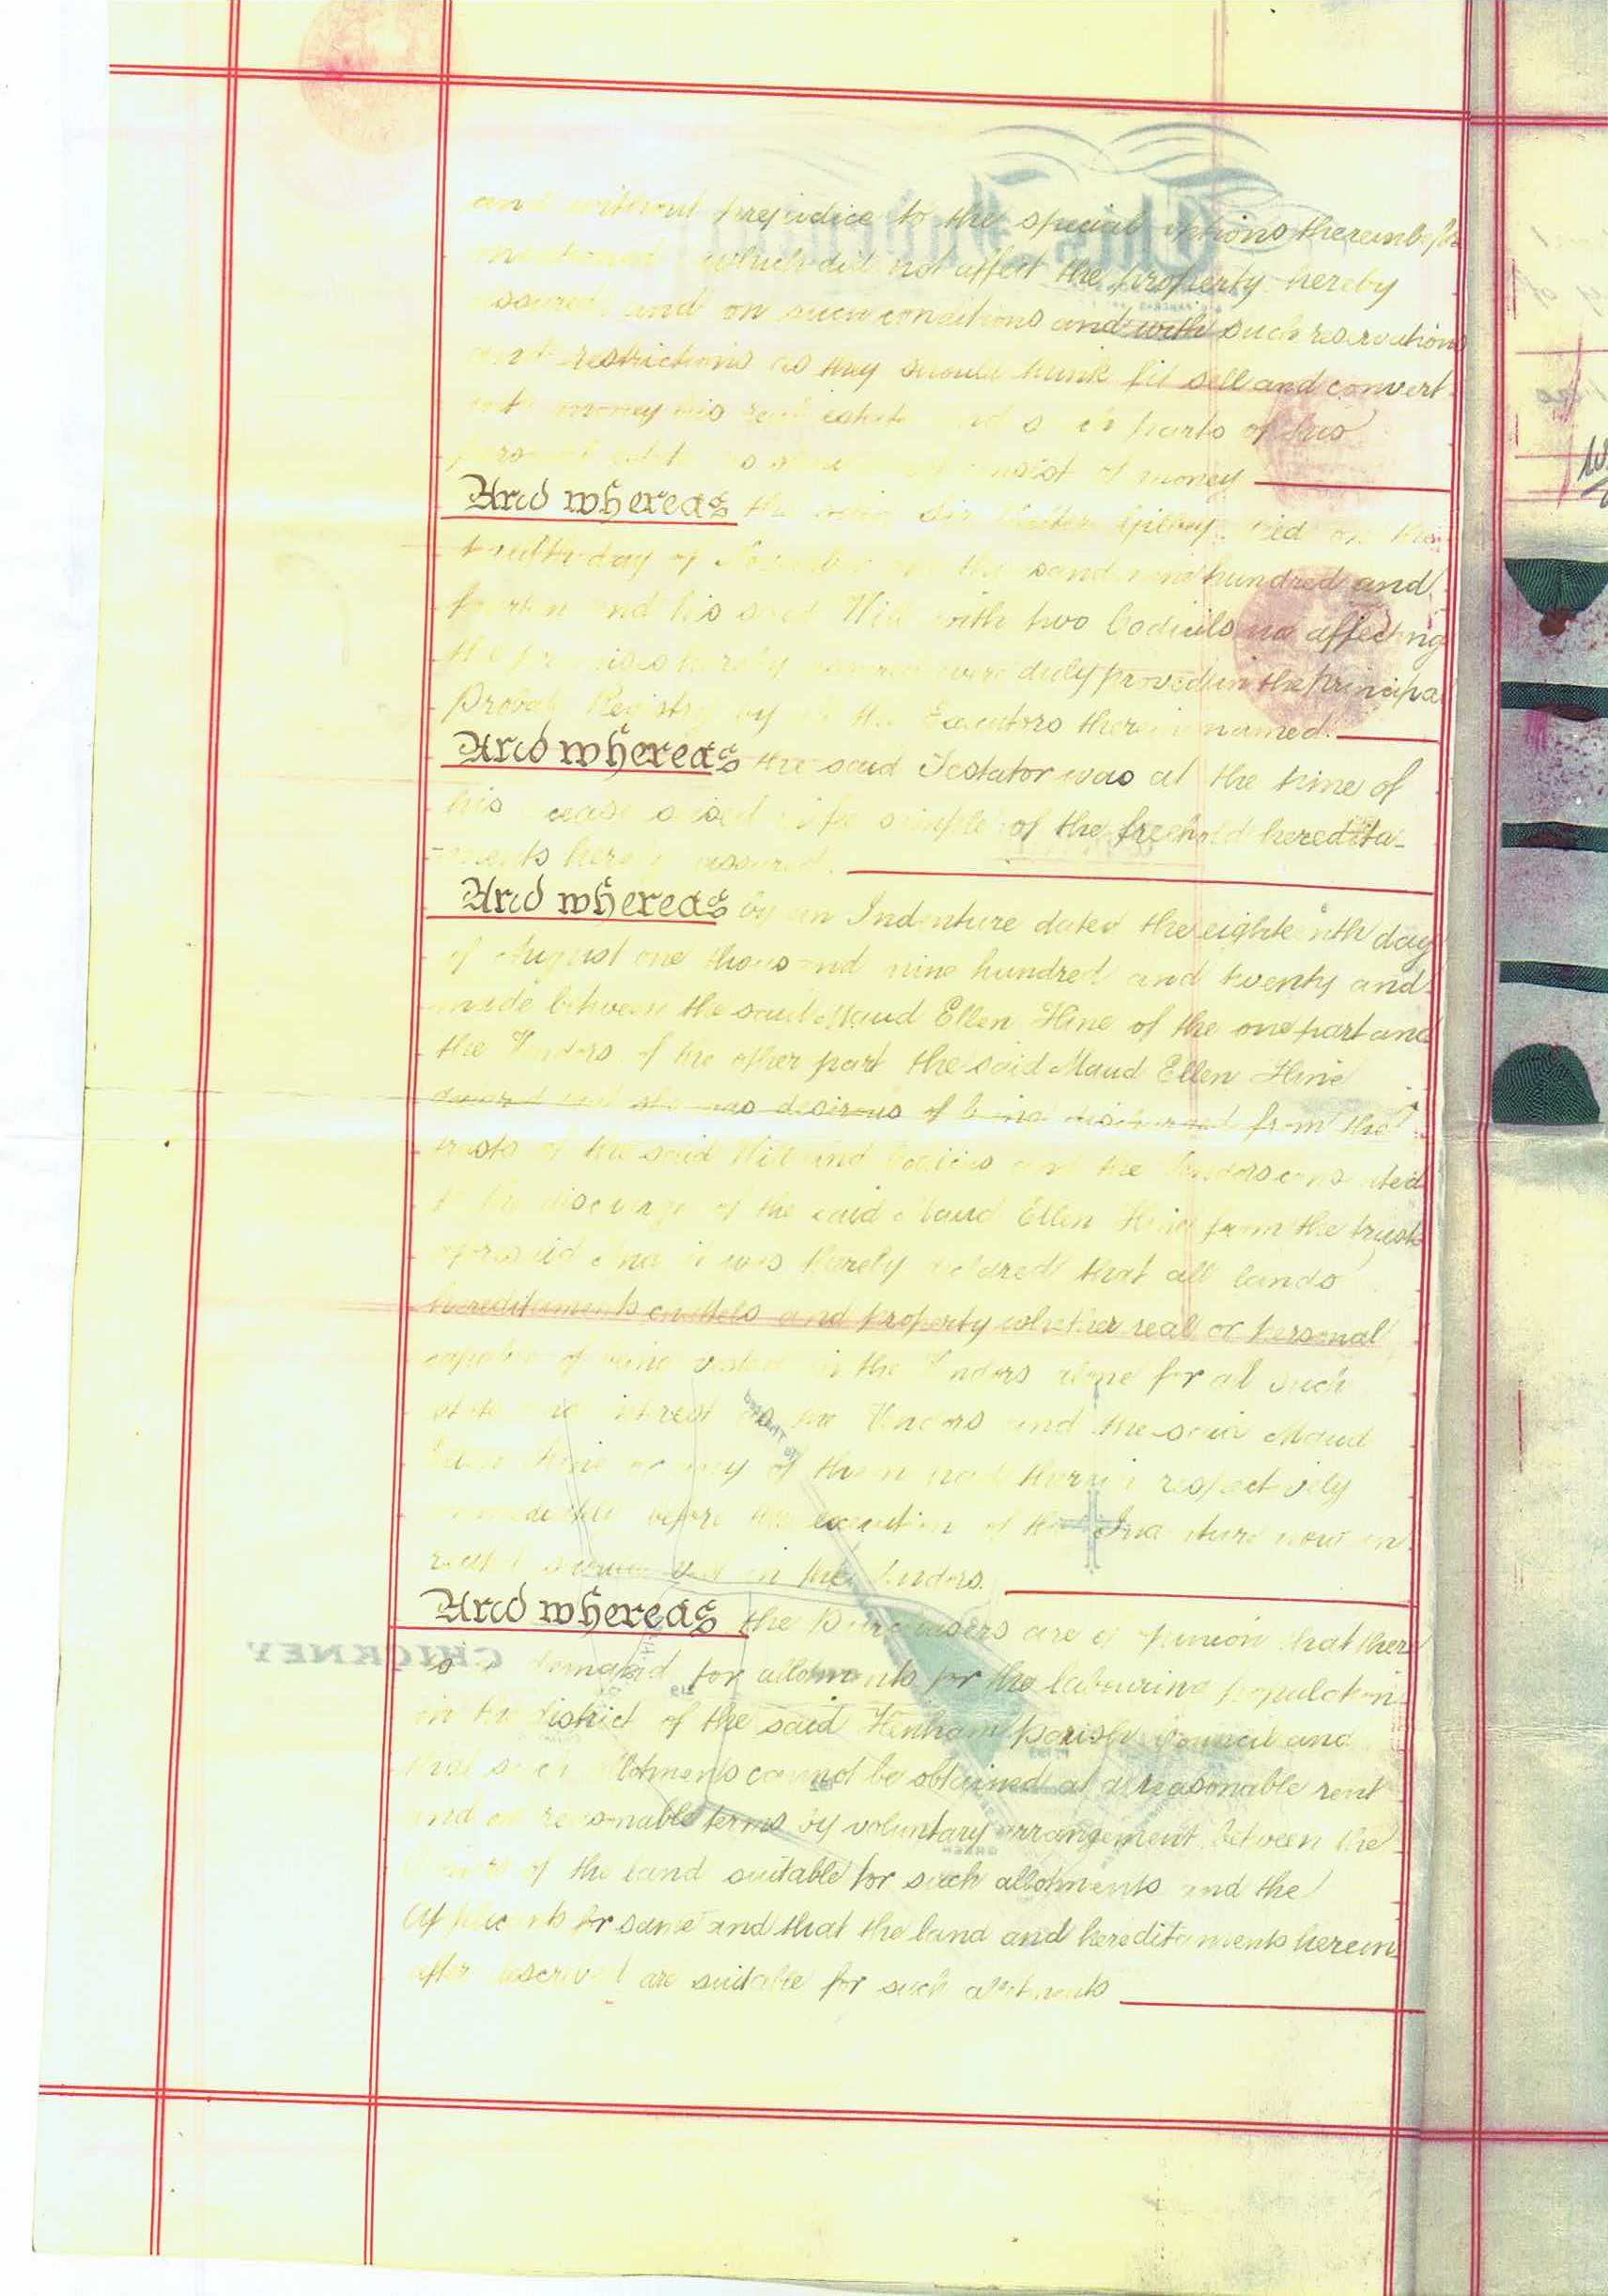 and without prejudice to the special options thereinbefore
mentioned which did not affect the property hereby
assured and on such conditions and with such reservations
and restrictions as they should think fit sell and convert
into money his real estate and such parts of his
personal estate as should not consist of money
And whereas the said Sir Walter Gilbey died on the
twelfth day of November one thousand nine hundred and
fourteen and his said Will with two Codicils no affecting
the premises hereby assured were duly proved in the Principal
Probate Registry by the Executors therein named.
And whereas the said Testator was at the time of
his decease seised in fee simple of the freehold heredita-
ments hereby assured.
And whereas by an Indenture dated the eighteenth day
of August one thousand nine hundred and twenty and
made between the said Maud Ellen Hine of the one part and
the Vendors of the other part the said Maud Ellen Hine
declared that she was desirous of being discharged from the
trusts of the said Will and Codicils and the Vendors consented
to the discharge of the said Maud Ellen Hine from the trusts
aforesaid And it was thereby declared that all lands
hereditaments chattels and property whether real or personal
capable of being vested in the Vendors alone for all such
estate and interest as the Vendors and the said Maud
Ellen Hine or any of them had therein respectively
immediately before the execution of the Indenture now in
recital should vest in the Vendors.
And whereas the Purchasers are of opinion that there
is a demand for allotments for the labouring population
in the district of the said Henham Parish Council and
that such allotments cannot be obtained at a reasonable rent
and on reasonable terms by voluntary arrangement between the
Owners of the land suitable for such allotments and the
applicants for same and that the land and hereditaments herein
after described are suitable for such allotments
CHICKNEY